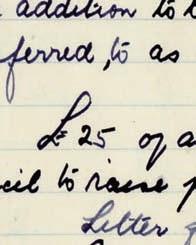 addition to t
ferred, to as
£ 25 of a
cil to raise p
Letter